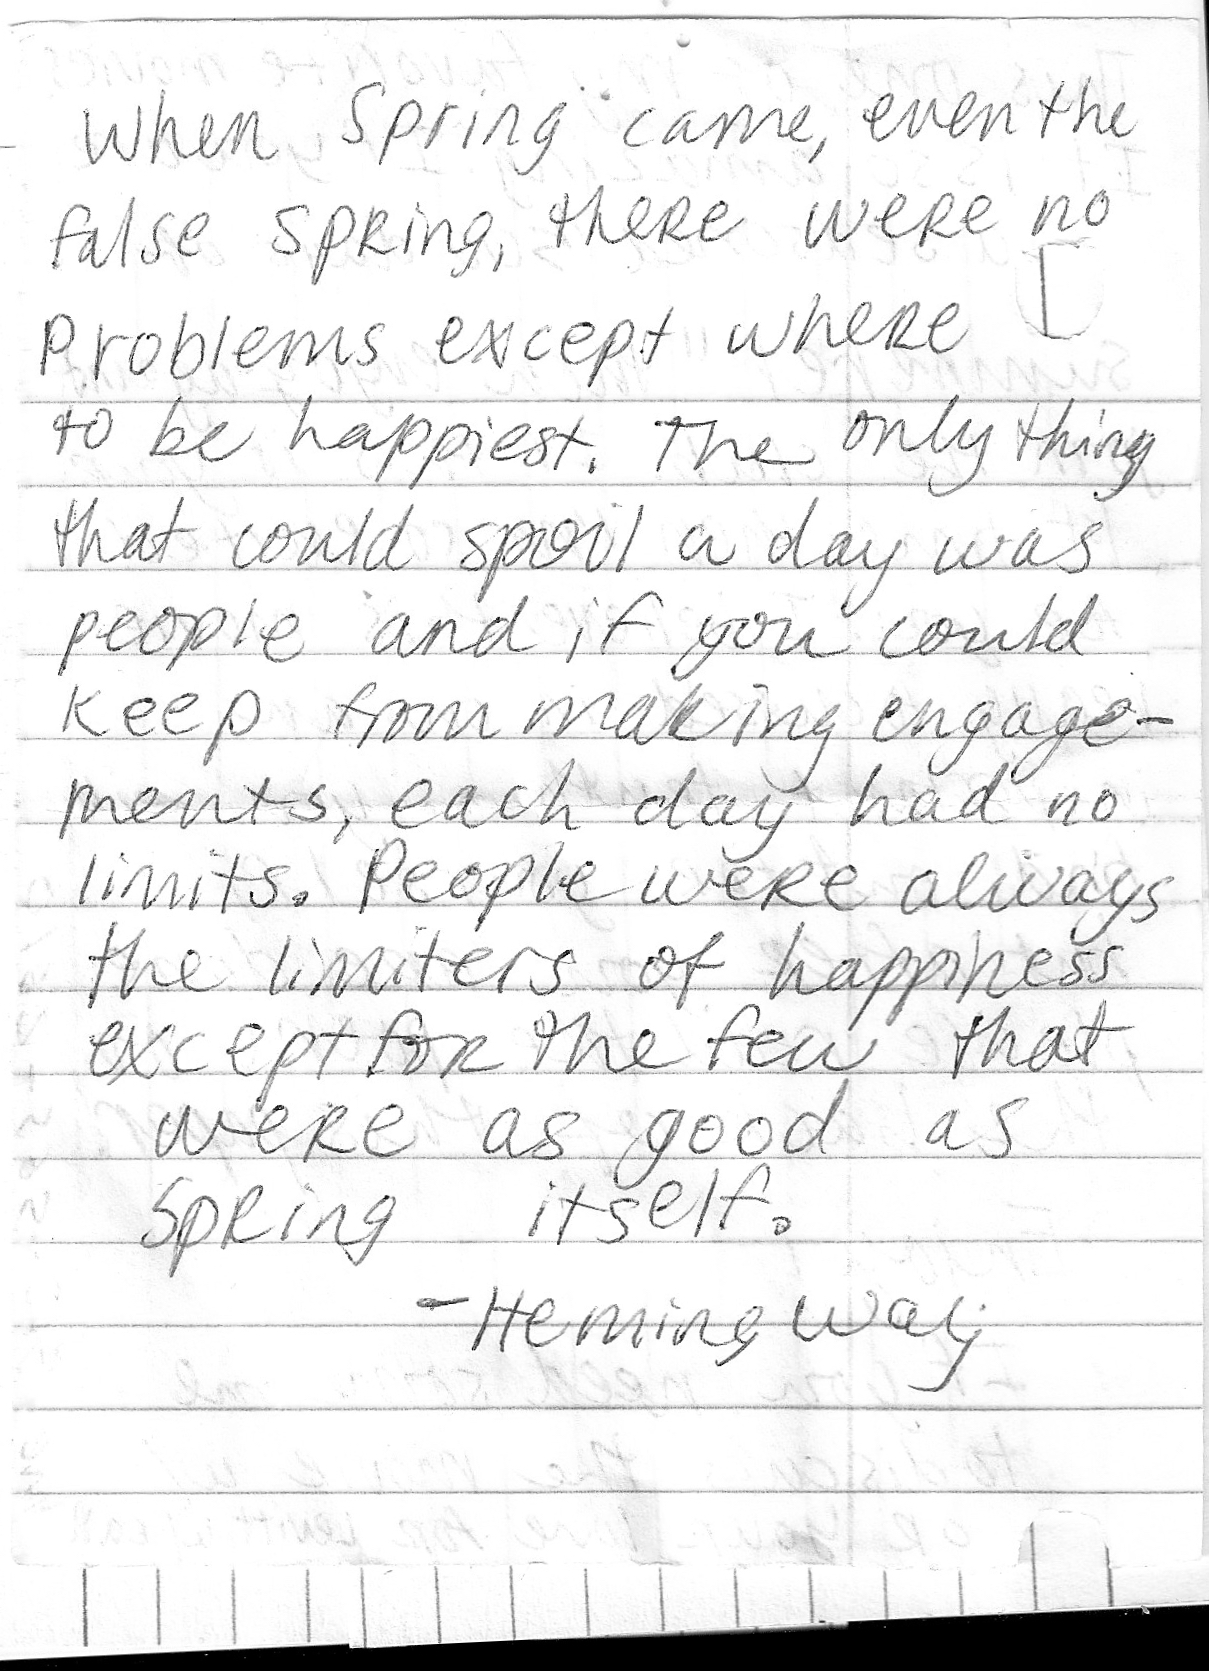 When Spring came, even the
false spring, there were no
problems except where
to be happiest. The only thing
that could spoil a day was
people and if you could
keep from making engage-
ments, each day had no
limits. People were always
the limiters of happiness
except for the few that
were as good as
spring itself.
-Hemingway